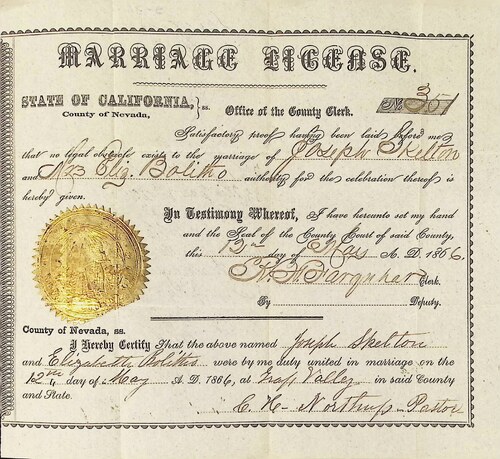 MARRIAGE LICENSE.
STATE OF CALIFORNIA, } ss.
County of Nevada,
Office of the County Clerk.
No 351
Satisfactory proof having been laid before me
that no legal obstacle exists to the marriage of Joseph Skelton
and Mrs Eliz. Bolitho authority for the celebration thereof is
hereby given.
In Testimony Whereof, I have hereunto set my hand
and the Seal of the County Court of said County,
this 12th day of May A. D. 1866.
Farquhar Clerk.
By Deputy.
County of Nevada, ss.
I Hereby Certify That the above named Joseph Skelton
and Elizabeth Bolitho were by me duly united in marriage on the
12th day of May A. D. 1866, at Grass Valley in said County
and State.
C. H. Northup - Pastor